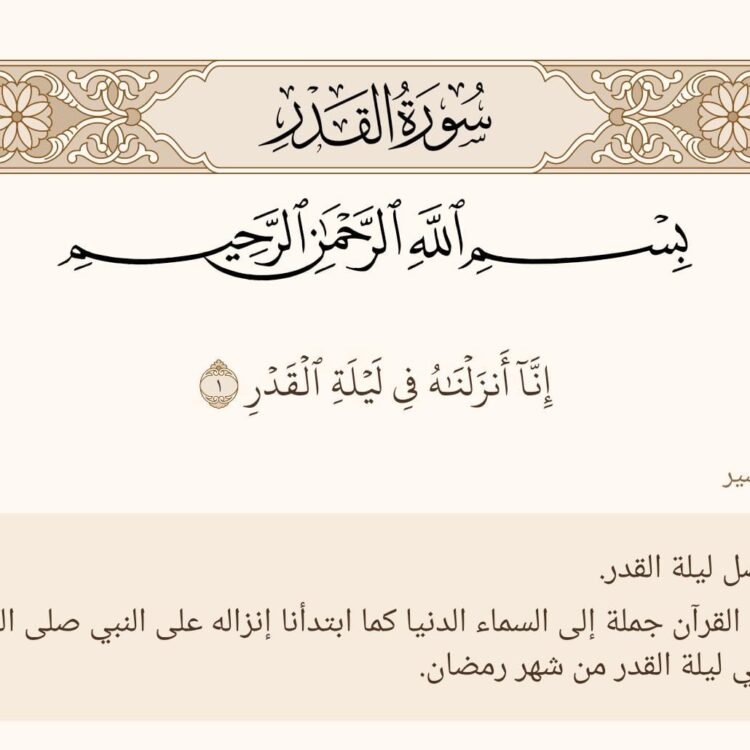 سُورَةُ القَدْرِ
بِسْمِ ٱللَّهِ ٱلرَّحْمَٰنِ ٱلرَّحِيمِ
إِنَّآ أَنزَلْنَٰهُ فِى لَيْلَةِ ٱلْقَدْرِ ١
ليلة القدر.
القرآن جملة إلى السماء الدنيا كما ابتدأنا إنزاله على النبي صلى
ليلة القدر من شهر رمضان.